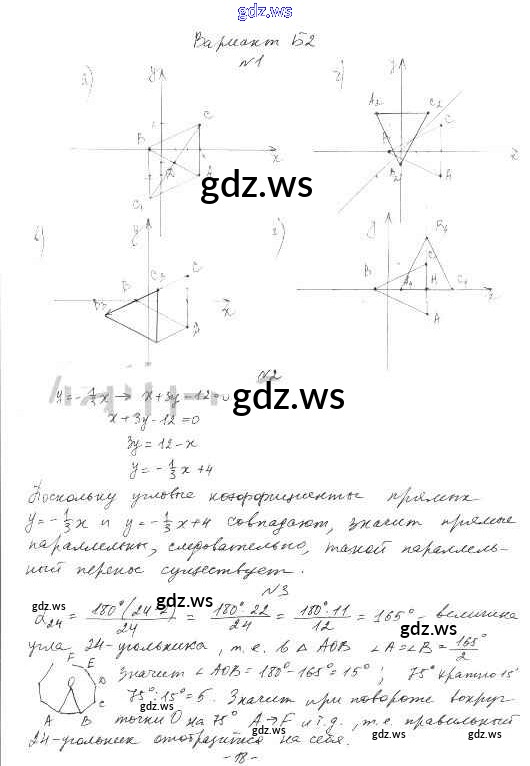 gdz.ws
Вариант Б2
№1
а) y C B A D x C₁
б) y A₂ C₂ C B B₂ A x
в) y B C₃ C B₃ A x
г) y B₄ C B A₄ H C₄ x A
gdz.ws
№2
y = -1/3 x → x + 3y - 12 = 0
gdz.ws
x + 3y - 12 = 0
3y = 12 - x
y = -1/3 x + 4
Поскольку угловые коэффициенты прямых
y = -1/3 x и y = -1/3 x + 4 совпадают, значит прямые
параллельны, следовательно, такой параллель-
ный перенос существует.
№3
gdz.ws gdz.ws
α₂₄ = 180°(24-2)/24 = 180°·22/24 = 180°·11/12 = 165° - величина
угла 24-угольника, т.е. в △ AOB ∠A = ∠B = 165°/2
gdz.ws gdz.ws
Значит ∠AOB = 180° - 165° = 15°; 75° кратно 15°
75° : 15° = 5. Значит при повороте вокруг
точки O на 75° A → F и т.д., т.е. правильный
24-угольник отобразится на себя.
F E D C B A O
gdz.ws gdz.ws
- 18 -